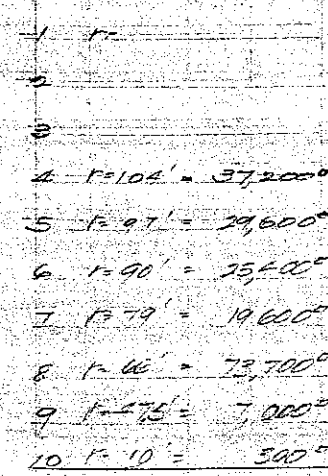 1 r=
2
3
4 r=104' = 37,200□
5 r=97' = 29,600□
6 r=90' = 25,400□
7 r=79' = 19,600□
8 r=66' = 13,700□
9 r=47.5' = 7,000□
10 r=10' = 300□